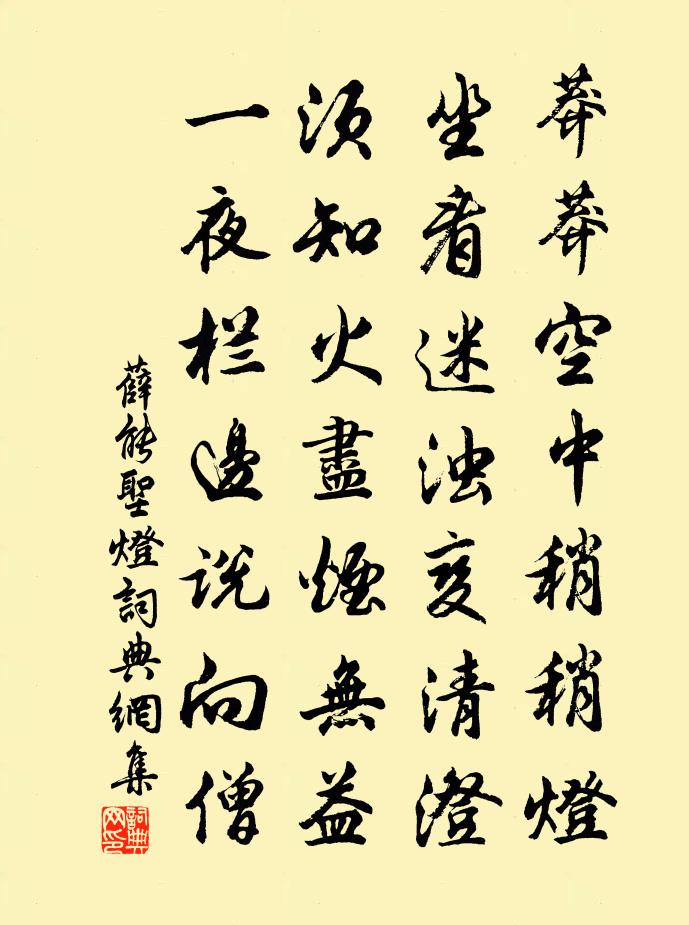 莽莽空中稍稍燈
坐看迷浊变清澄
须知火盡煙無益
一夜栏邊说向僧
薛能聖燈詞典網集
詞典网印